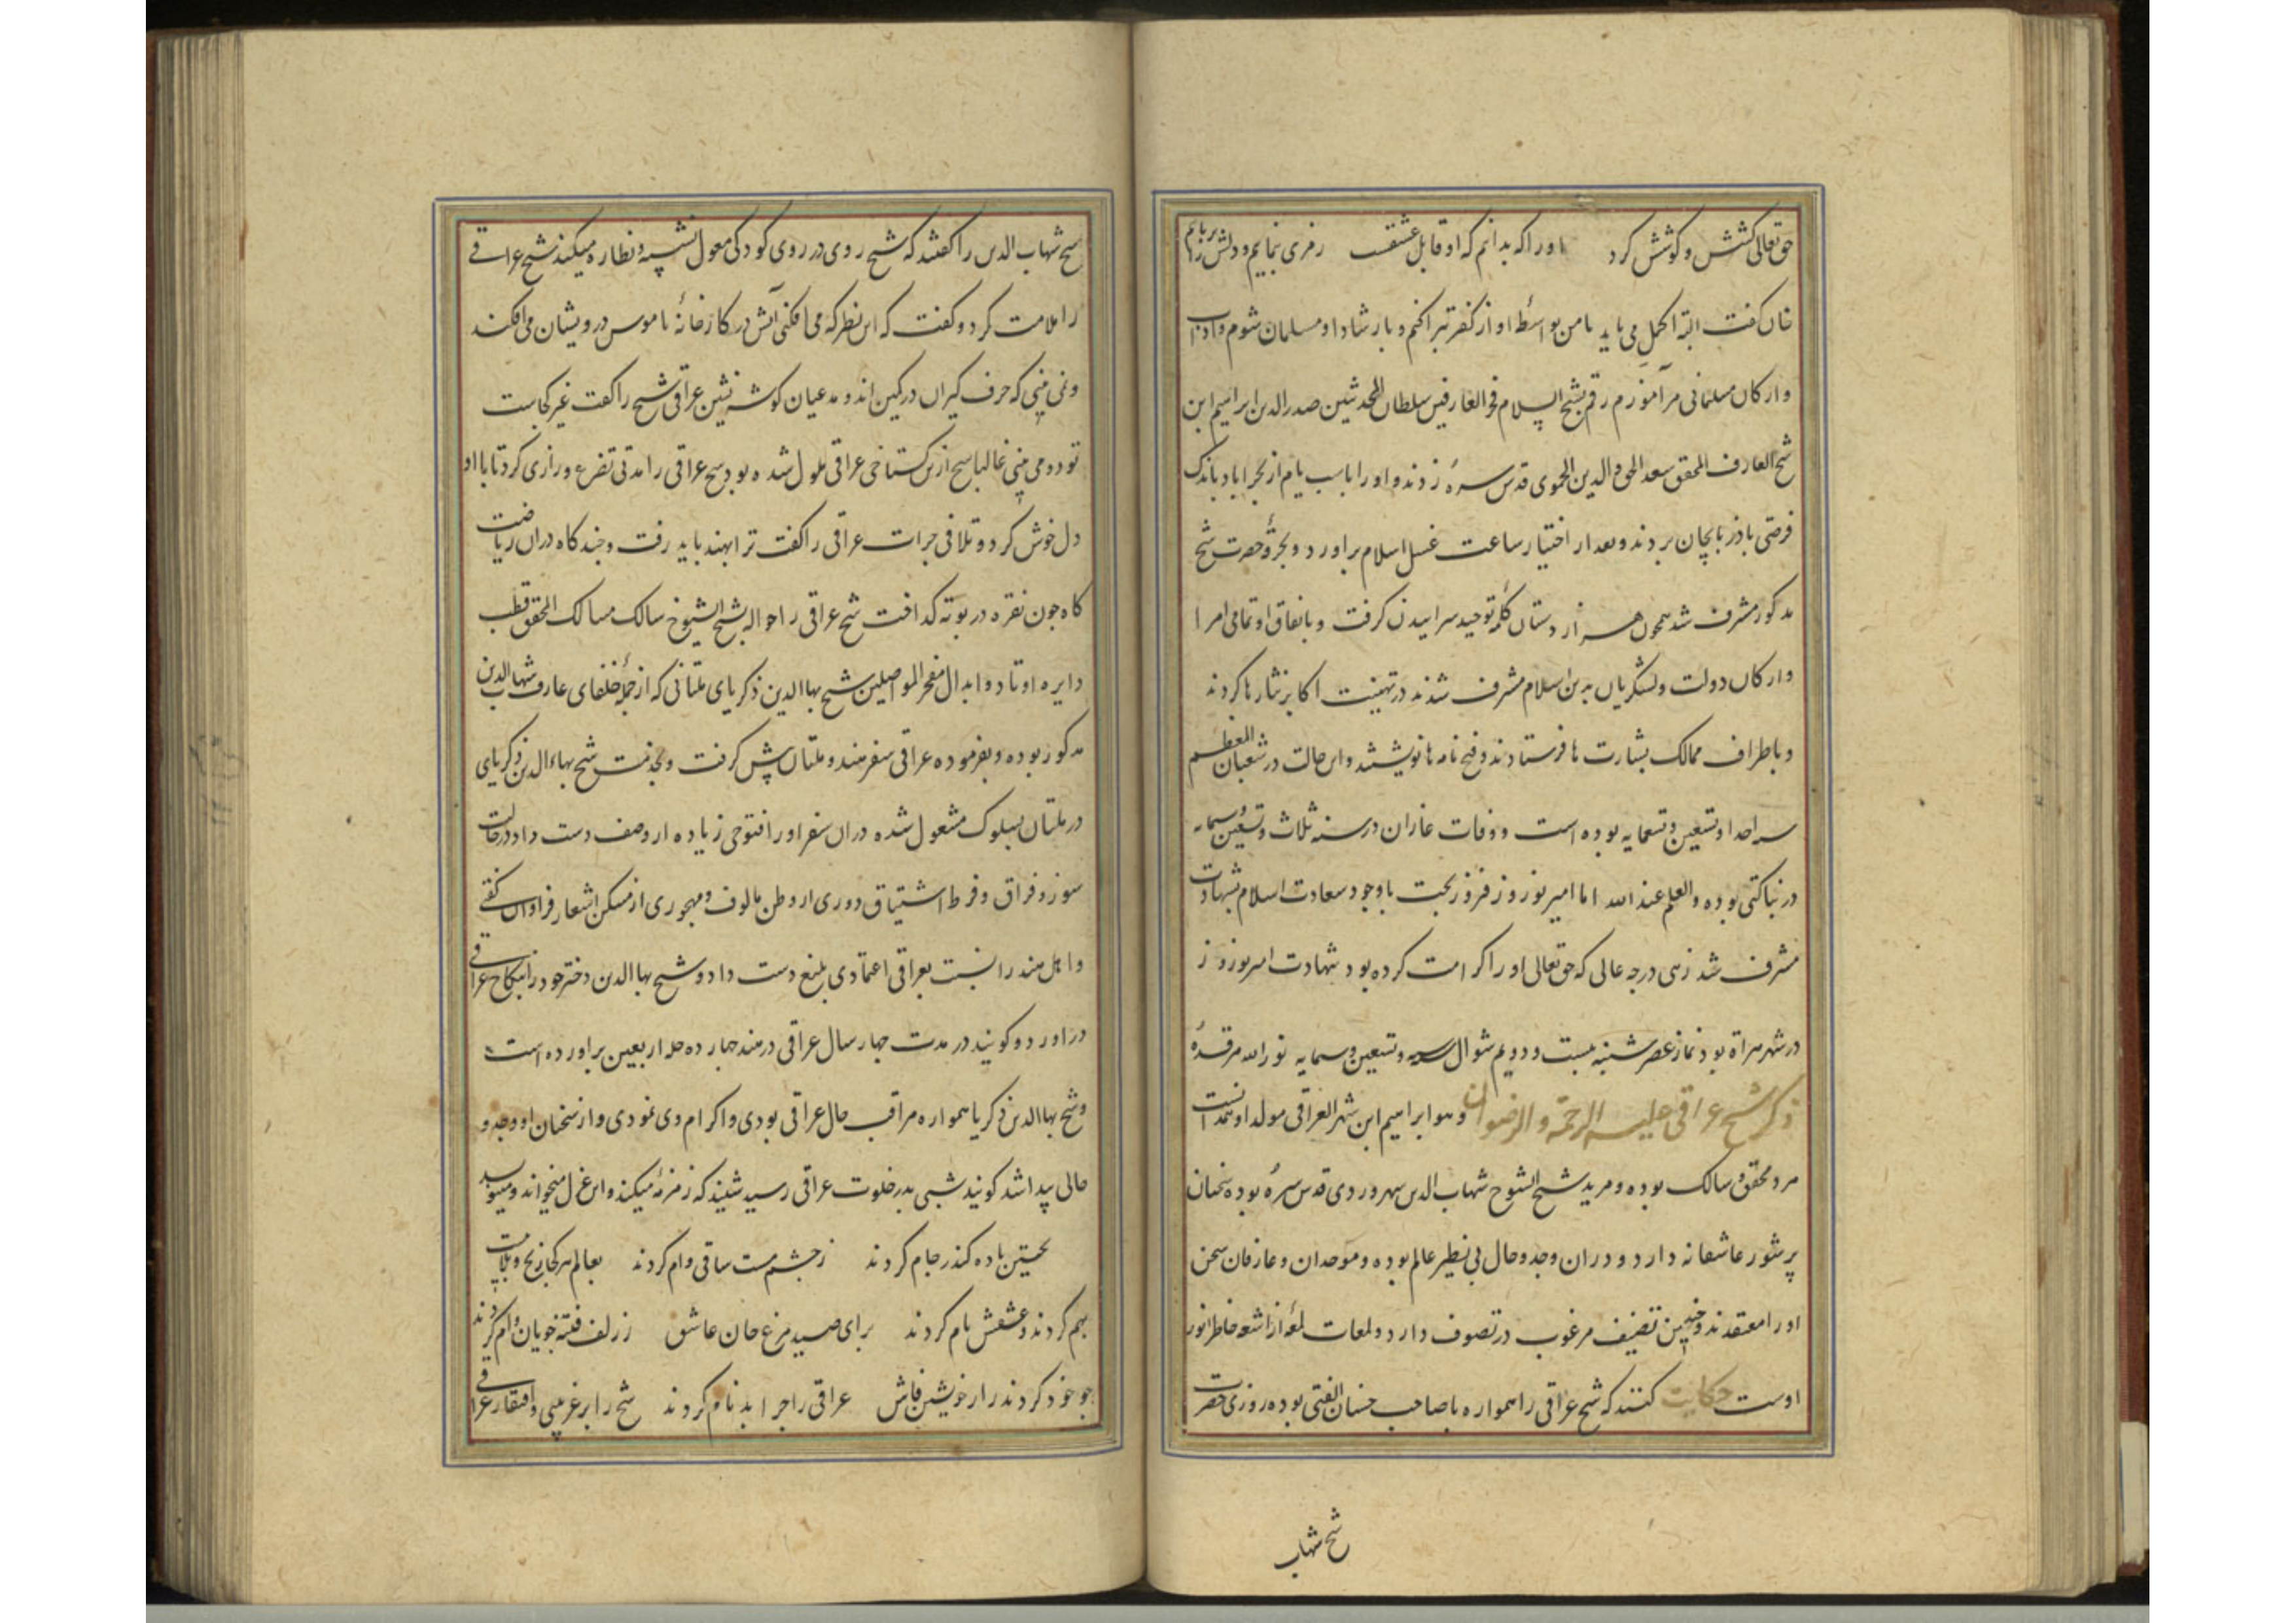 حق تعالی کشش و کوشش کرد اورا که بدانم که او قابل عشقست رمزی بنمایم و دلش بربایم
خان کفت البته اکمل می باید تا من بواسطهٔ او از کفر تبرا کنم و بارشاد او مسلمان شوم و اداب
وارکان مسلمانی مرآموزم رقم بشیخ السلام فخر العارفین سلطان المحدثین صدرالدین ابراهیم ابن
شیخ العارف المحقق سعد الحق والدین الحموی قدس سرهٔ زدند و اورا باسب یام از بحراباد باندک
فرصتی باذربایجان بردند و بعد از اختیار ساعت غسل اسلام براورد و بحجرهٔ حضرت شیخ
مذکور مشرف شد همچون هزار دستان کلمهٔ توحید سراییدن کرفت و باتفاق او تمامی امرا
وارکان دولت ولشکریان بدین اسلام مشرف شدند در تهنیت اکابر نثارها کردند
وباطراف ممالک بشارت ها فرستادند و فتح نامه ها نوشتند واین حالت در شعبان المعظم
سنه احدا وتسعین وتسعمایه بوده است و وفات غازان در سنه ثلاث وتسعین وسبمایه
در نباکتی بوده والعلم عند الله اما امیر نوروز فیروز بخت باوجود سعادت اسلام بشهادت
مشرف شد زهی درجه عالی که حق تعالی اورا کرامت کرده بود شهادت امیر نوروز
در شهر هراة بود نماز عصر شنبه بیست ودویم شوال سنه وتسعین وسبمایه نور الله مرقدهٔ
ذکر شیخ عراقی علیه الرحمة والرضوان وهو ابراهیم ابن شهر العراقی مولد او همدانست
مرد محقق و سالک بوده و مرید شیخ الشیوخ شهاب الدین سهروردی قدس سرهٔ بوده سخنان
پرشور عاشقانه دارد و دران وجد وحال بی نظیر عالم بوده وموحدان وعارفان سخن
اورا معتقدند و چندین تصنیف مرغوب در تصوف دارد ولمعات لمعهٔ از اشعهٔ خاطر انور
اوست حکایت کنند که شیخ عراقی را همواره با صاحب حسنان الفتی بوده روزی حضرت
شیخ شهاب
شیخ شهاب الدین را کفتند که شیخ روی در روی کودکی مقبول نشسته ونظاره میکند شیخ عراقی
را ملامت کرد و کفت که این نظر که می افکنی آتش در کارخانهٔ ناموس درویشان می افکند
و نمی بینی که حرف کیران در کمین اند و مدعیان کوشه نشین عراقی شیخ را کفت غیر کجاست
تو دو می بینی غالبا شیخ ازین کستاخی عراقی ملول شده بود شیخ عراقی را مدتی تضرع وزاری کرد تا با او
دل خوش کرد و تلافی جرات عراقی را کفت ترا بهند باید رفت و چند کاه دران ریاضت
کاه چون نقره در بوته کداخت شیخ عراقی را حواله بشیخ الشیوخ سالک مسالک المحقق قطب
دایره اوتاد و ابدال مفخر المواصلین شیخ بهاالدین ذکریای ملتانی که از جملهٔ خلفای عارف شهاب الدین
مذکور بوده و بفرموده عراقی سفر هند و ملتان پیش کرفت و بخدمت شیخ بهاءالدین ذکریای
در ملتان بسلوک مشغول شده دران سفر اورا فتوحی زیاده از وصف دست داد درحالت
سوز و فراق و فرط اشتیاق دوری از وطن مالوف و مهجوری از مسکن اشعار فراوان کفتی
واهل هند را نسبت بعراقی اعتقادی بلیغ دست داد و شیخ بهاالدین دختر خود را بنکاح عراقی
دراورد و کویند در مدت چهار سال عراقی در هند چهارده چله اربعین براورده است
وشیخ بهاالدین ذکریا همواره مراقب حال عراقی بودی واکرام وی نمودی وازسخنان او وجد و
حالی پیدا شد کویند شبی بدر خلوت عراقی رسید شنید که زمزمهٔ میکند واین غزل میخواند ومیشنوید
نخستین باده کندر جام کردند زچشم مست ساقی وام کردند بعالم هر کجا رنج و بلاییست
بهم کردند و عشقش نام کردند برای صید مرغ جان عاشق ززلف فتنه خوبان دام کردند
چو خود کردند راز خویشتن فاش عراقی را چرا بدنام کردند شیخ را بر غریبی وافتقار عراقی